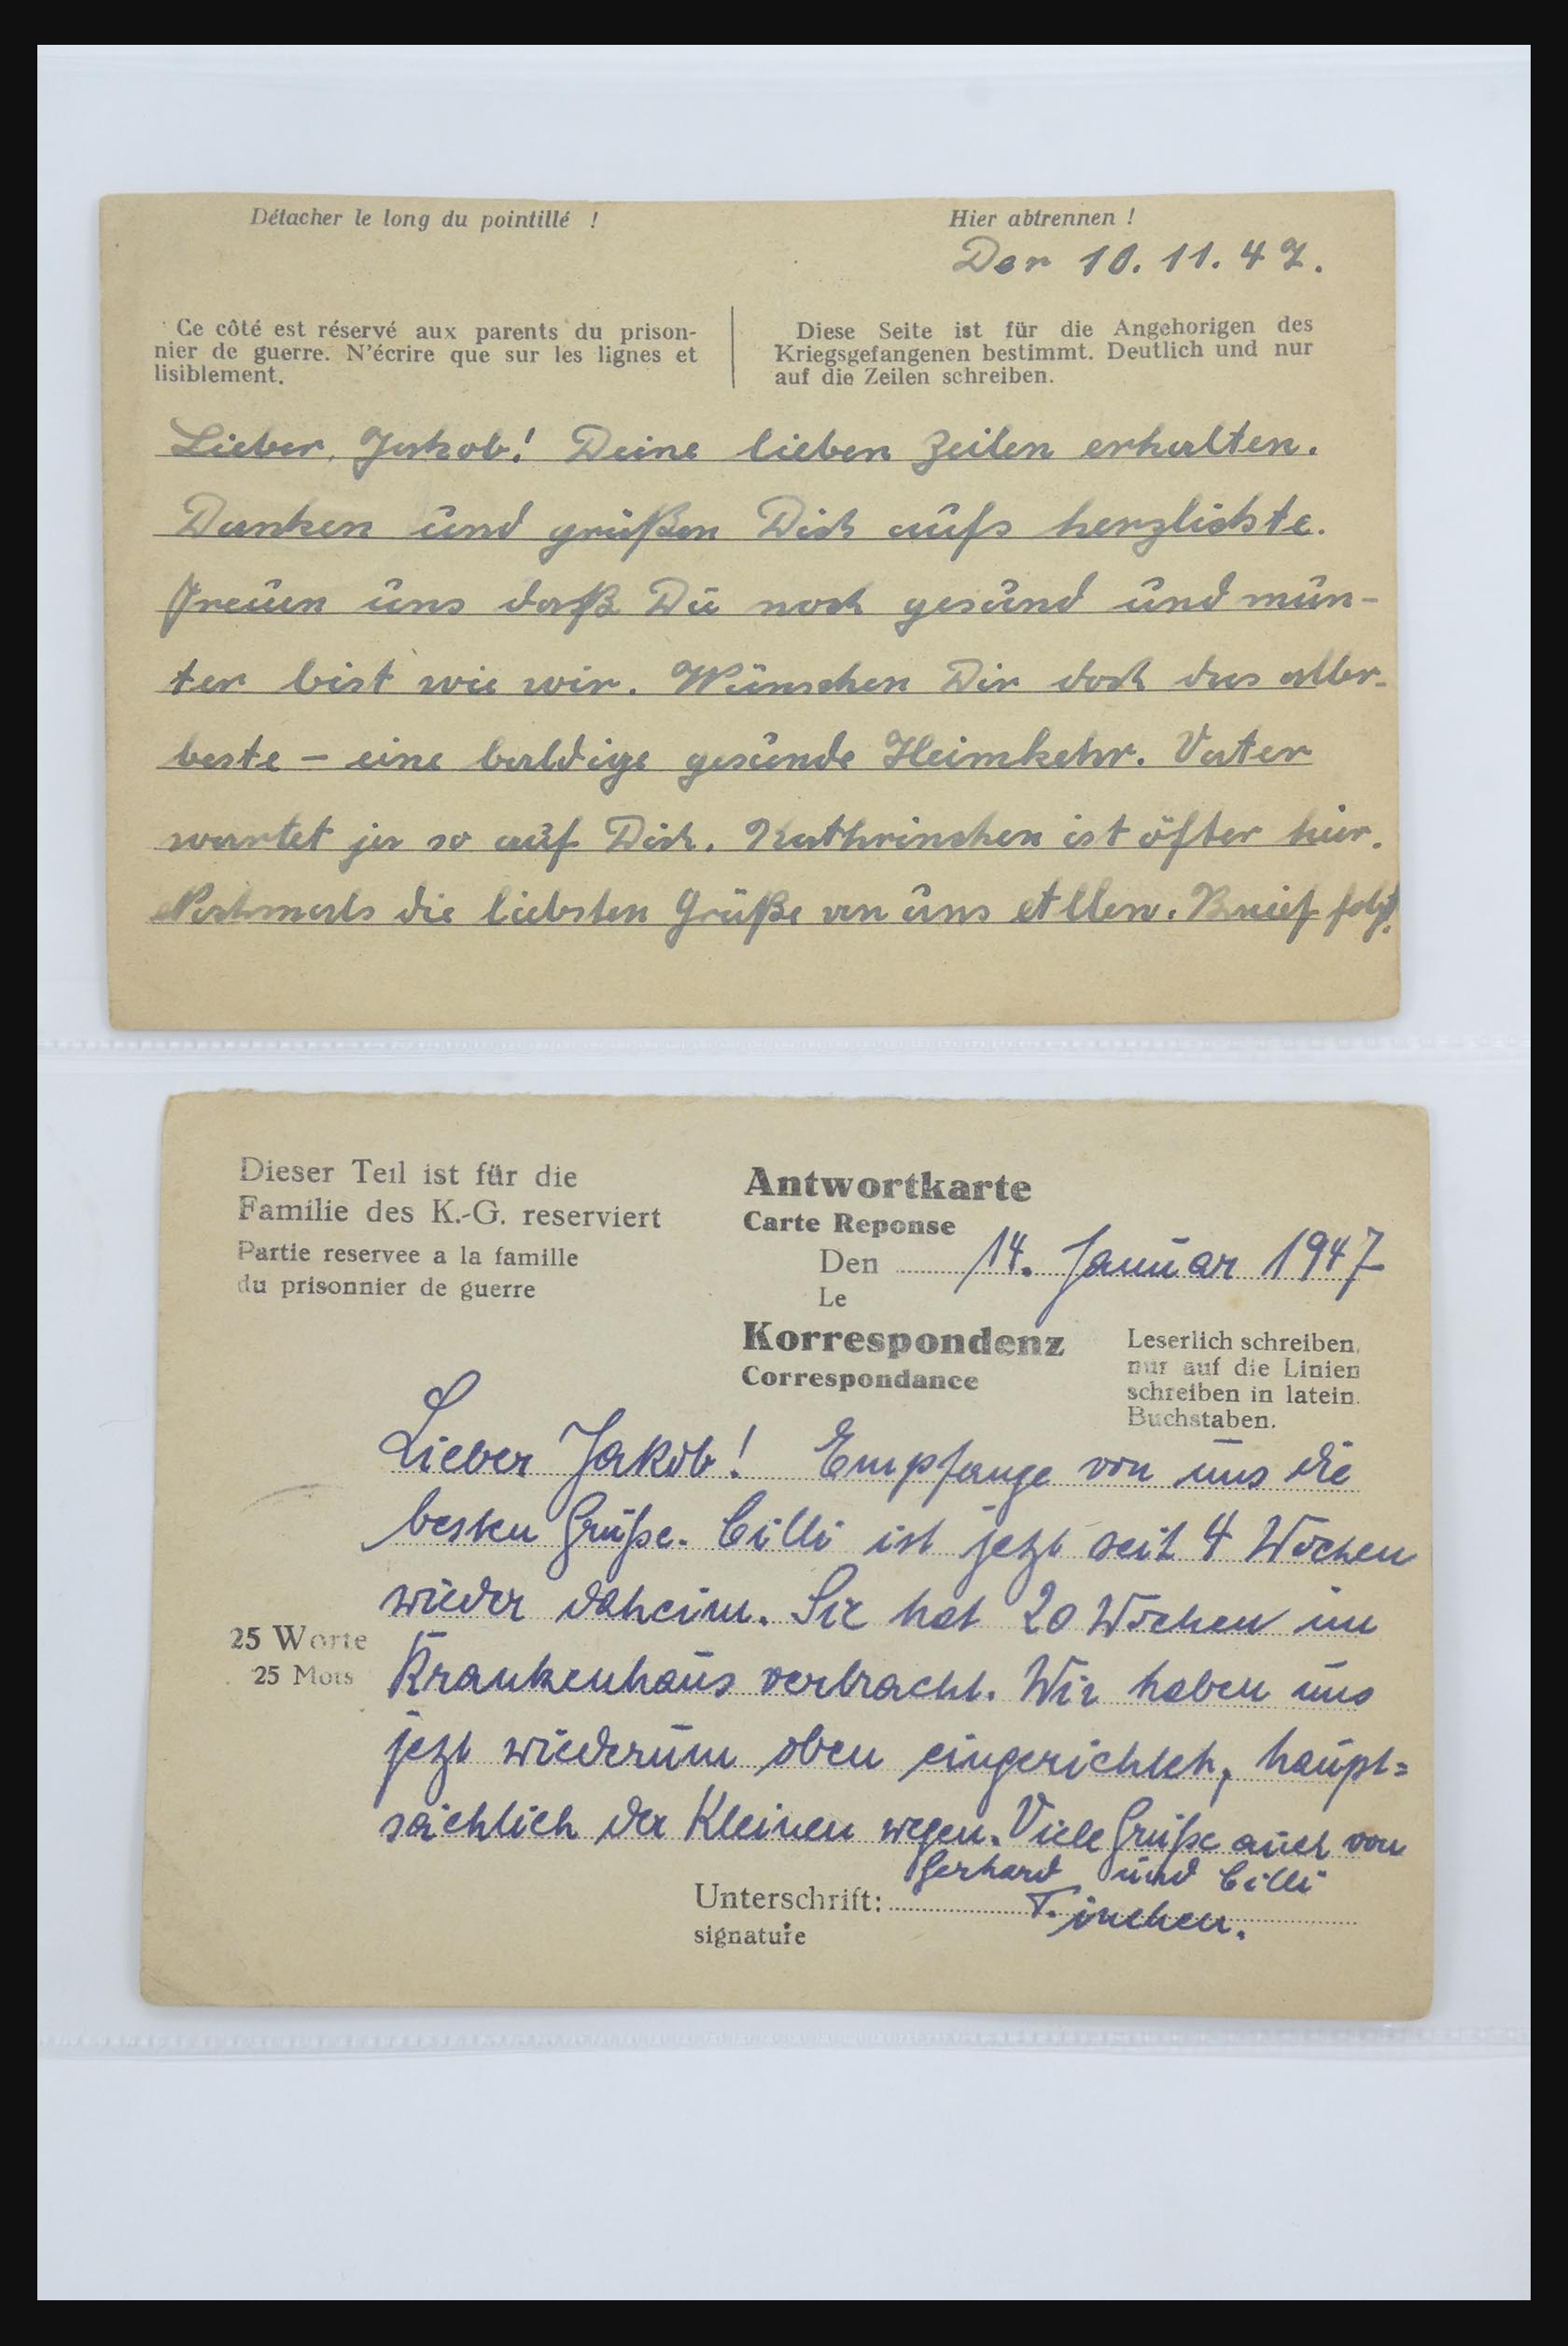 Détacher le long du pointillé !
Hier abtrennen !
Den 10. 11. 47.
Ce côté est réservé aux parents du prison-
nier de guerre. N'écrire que sur les lignes et
lisiblement.
Diese Seite ist für die Angehorigen des
Kriegsgefangenen bestimmt. Deutlich und nur
auf die Zeilen schreiben.
Lieber Jakob! Deine lieben Zeilen erhalten.
Danken und grüßen Dich aufs herzlichste.
Freuen uns daß Du noch gesund und mun-
ter bist wie wir. Wünschen Dir doch das aller-
beste – eine baldige gesunde Heimkehr. Vater
wartet ja so auf Dich. Kathrinchen ist öfter hier.
Nochmals die liebsten Grüße von uns Allen. Brief folgt.
Dieser Teil ist für die
Familie des K.-G. reserviert
Partie reservee a la famille
du prisonnier de guerre
Antwortkarte
Carte Reponse
Den 14. Januar 1947
Le
Korrespondenz
Correspondance
Leserlich schreiben,
nur auf die Linien
schreiben in latein.
Buchstaben.
Lieber Jakob! Empfange von uns die
besten Grüße. Cilli ist jetzt seit 4 Wochen
wieder daheim. Sie hat 20 Wochen im
25 Worte
25 Mots
Krankenhaus verbracht. Wir haben uns
jetzt wiederum oben eingerichtet, haupt=
sächlich der Kleinen wegen. Viele Grüße auch von
Gerhard und Cilli
Unterschrift: Tinchen.
signature